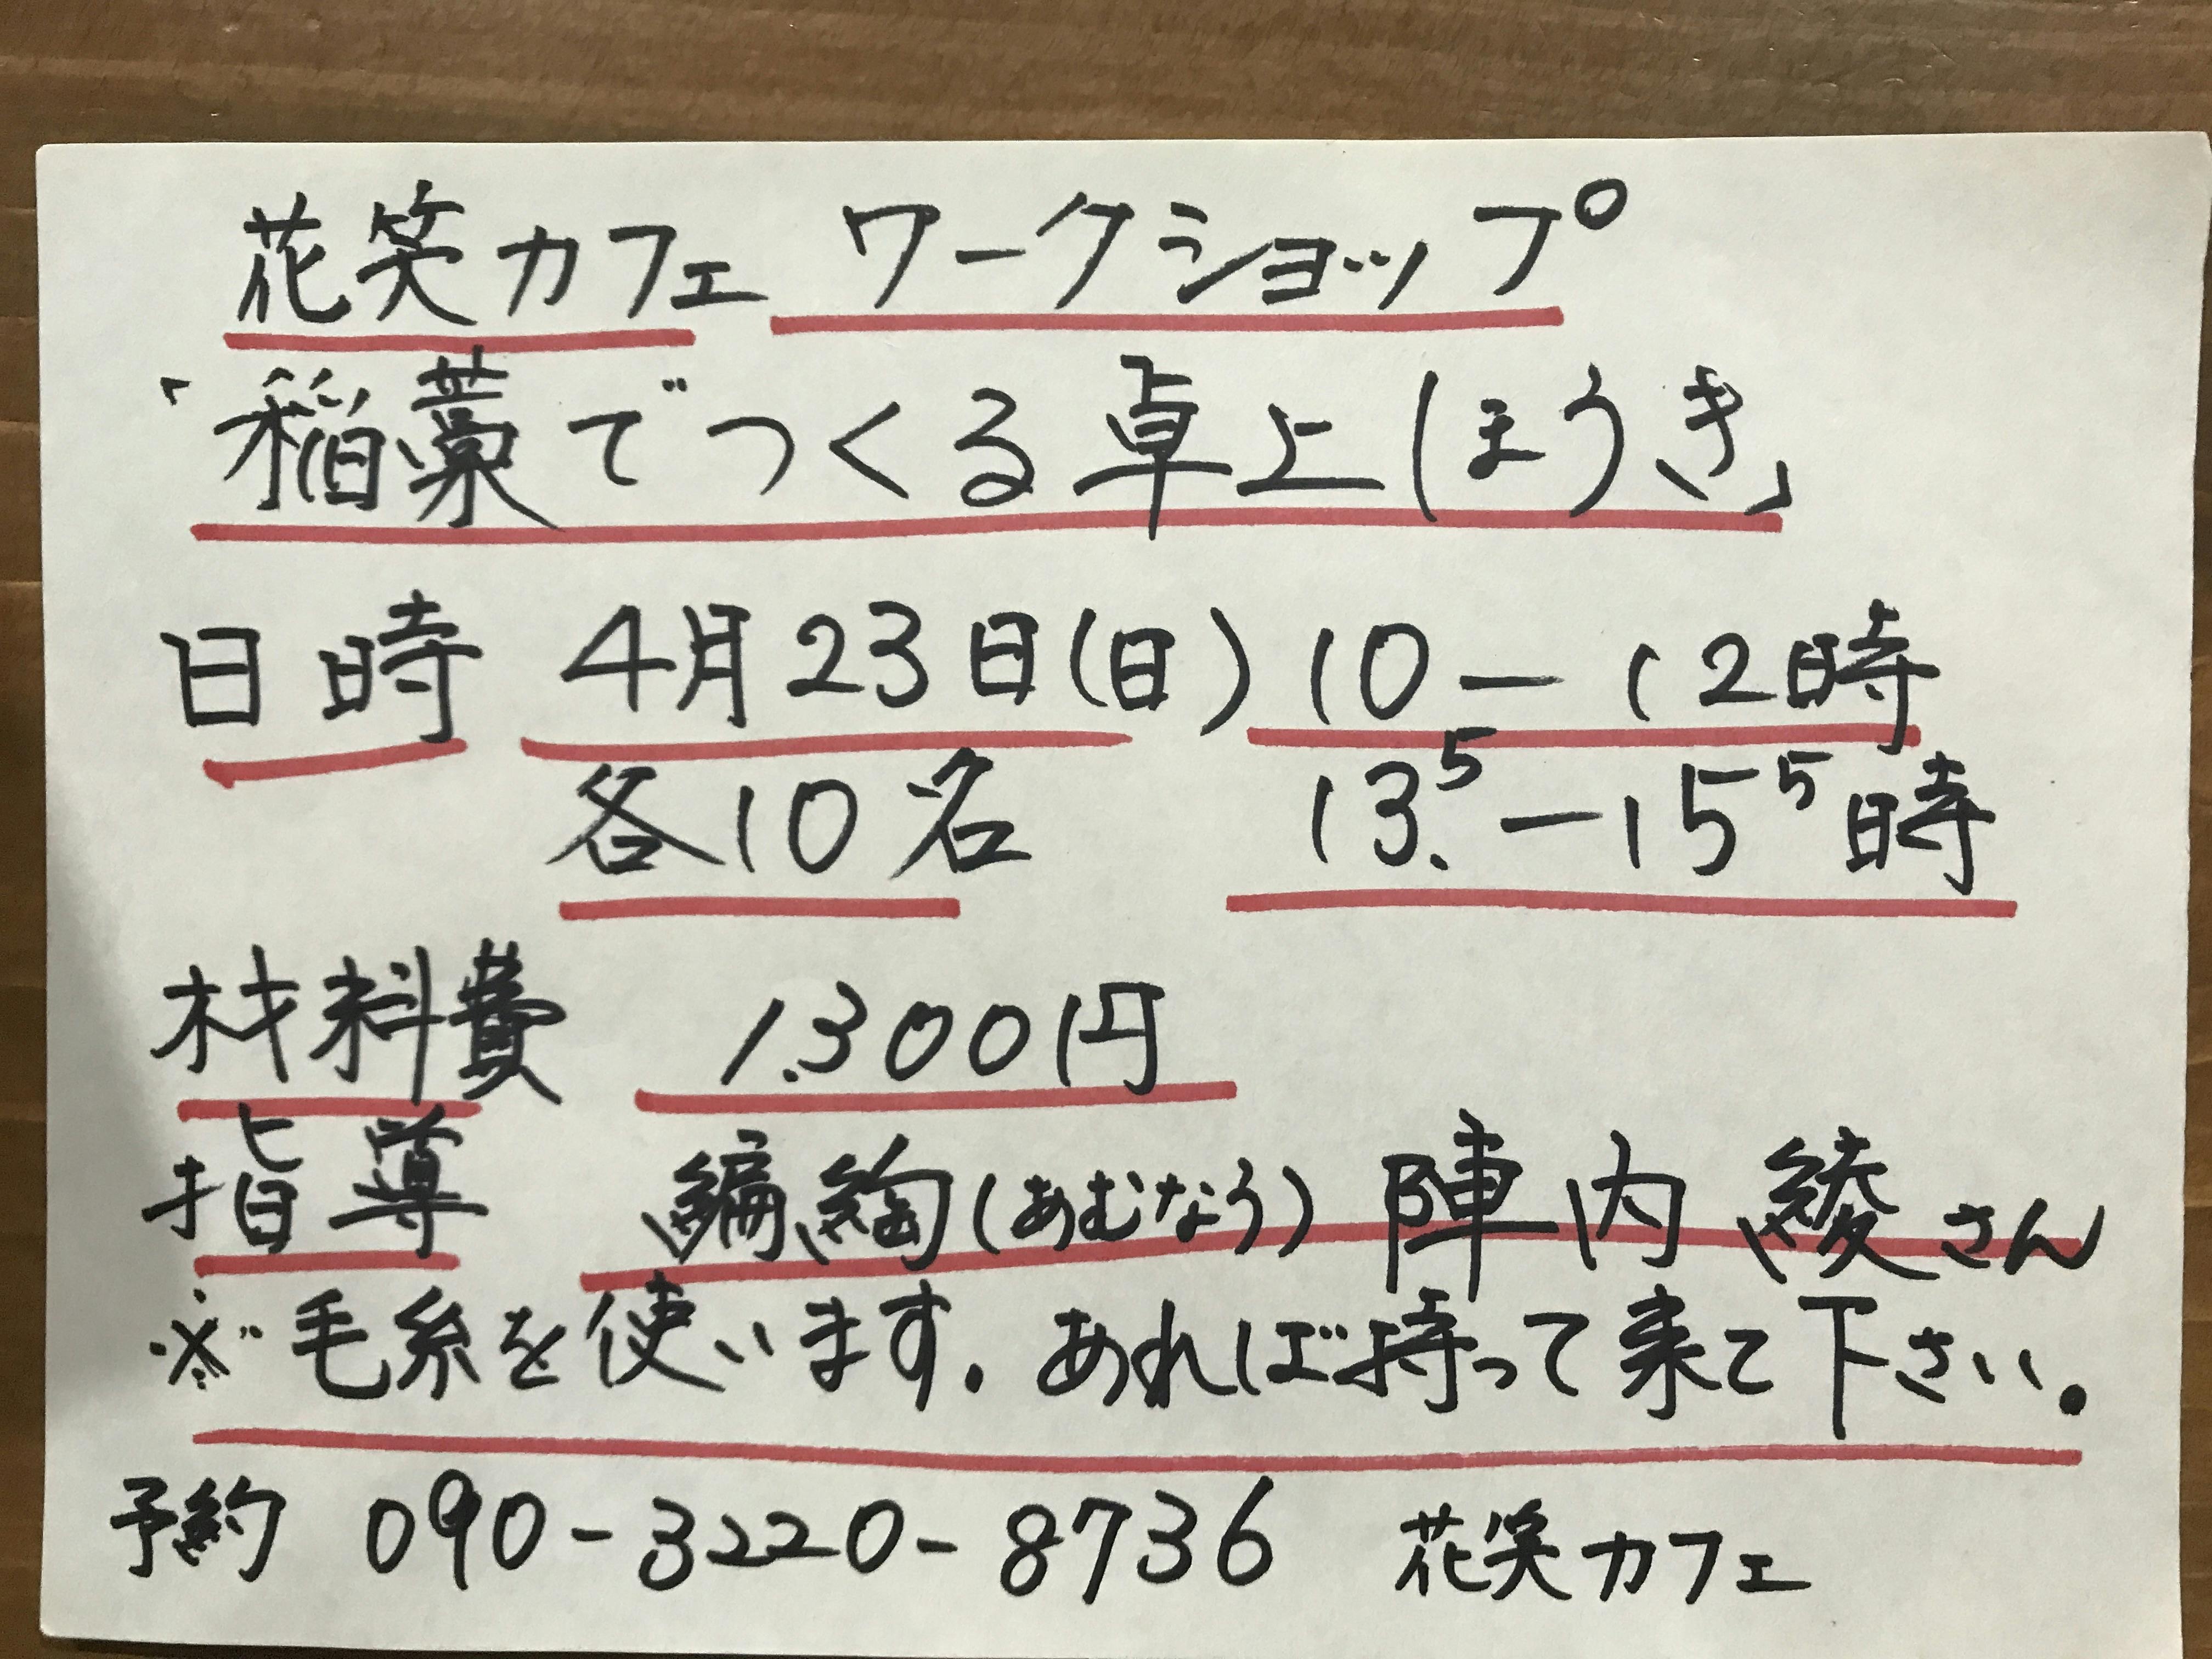 花笑カフェ ワークショップ
「稲藁でつくる卓上ほうき」
日時 4月23日(日) 10－12時
各10名 13.5－155時
材料費 1.300円
指導 編綯(あむなう) 陣内 綾さん
※毛糸を使います.あれば持って来て下さい.
予約 090-3220-8736 花笑カフェ